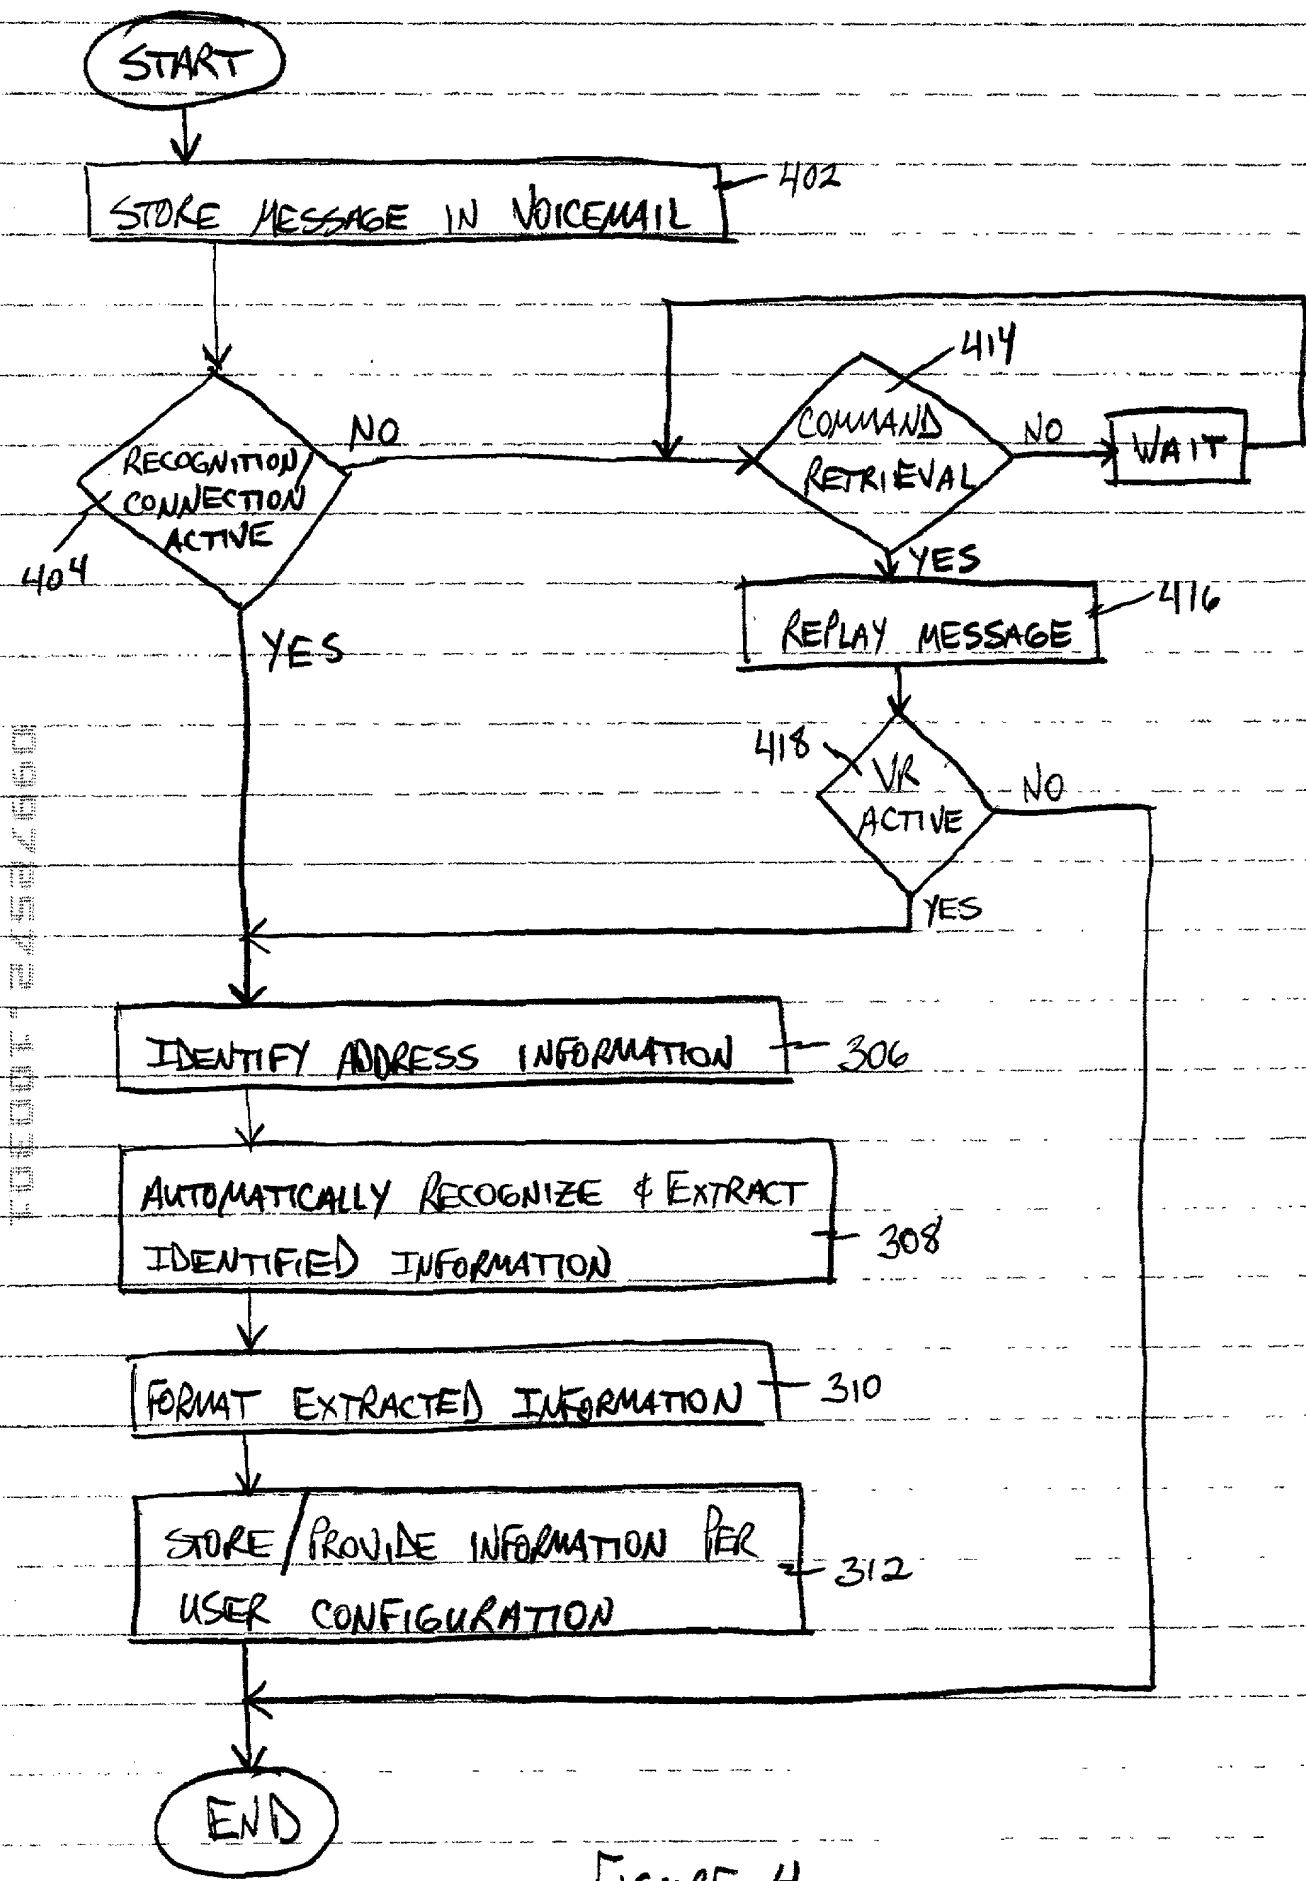 START
STORE MESSAGE IN VOICEMAIL
402
RECOGNITION/
CONNECTION
ACTIVE
404
NO
YES
COMMAND
RETRIEVAL
414
NO
WAIT
YES
REPLAY MESSAGE
416
VR
ACTIVE
418
NO
YES
IDENTIFY ADDRESS INFORMATION
306
AUTOMATICALLY RECOGNIZE & EXTRACT
IDENTIFIED INFORMATION
308
FORMAT EXTRACTED INFORMATION
310
STORE/PROVIDE INFORMATION PER
USER CONFIGURATION
312
END
FIGURE 4